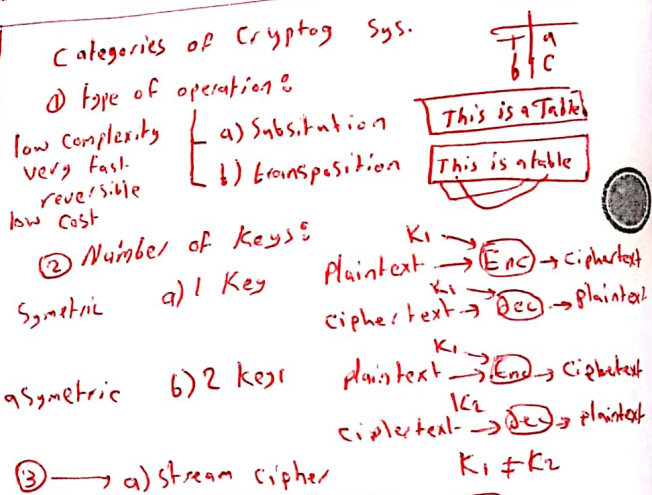 Categories of Cryptog Sys.
T a
b c
① type of operation:
low complexity
very fast
reversible
low cost
a) Subsitution
This is a Table
b) transposition
This is a table
② Number of Keys:
Symetric a) 1 Key
K1
Plaintext → Enc → Ciphertext
K1
ciphertext → Dec → Plaintext
asymetric b) 2 keys
K1
plaintext → Enc → Ciphetext
K2
ciphertext → Dec → plaintext
K1 ≠ K2
③ → a) stream cipher